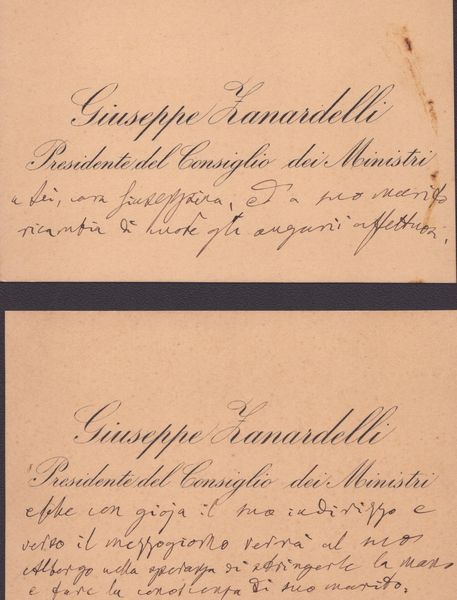 Giuseppe Zanardelli
Presidente del Consiglio dei Ministri
a Lei, cara Giuseppina, e a suo marito
ricambia di cuore gli augurii affettuosi.
Giuseppe Zanardelli
Presidente del Consiglio dei Ministri
ebbe con gioja il suo indirizzo e
verso il mezzogiorno verrà al suo
Albergo nella speranza di stringerle la mano
e fare la conoscenza di suo marito.